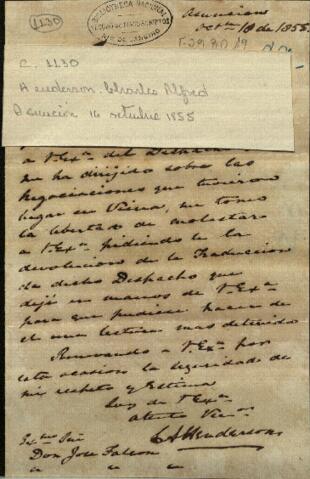 1130
BIBLIOTHECA NACIONAL
RIO DE JANEIRO
Asuncion
Octre 18 de 1855.
C. 1130
Henderson, Charles Alfred
Asunción 16 setubre 1855
a VExa. del Despacho
me ha dirijido sobre las
Negociaciones que tuvieron
lugar en Viena, me tomo
la libertad de molestar
a VExa. pidiendole la
devolucion de la Traduccion
de dicho Despacho que
dejé en manos de V.Exa.
para que pudiese hacer de
el una lectura mas detenida
Renovando a V.Exa. por
esta ocasion la seguridad de
mi respeto y Estima
Soy de VExa.
atento
C A Henderson
Don Jose Falcon